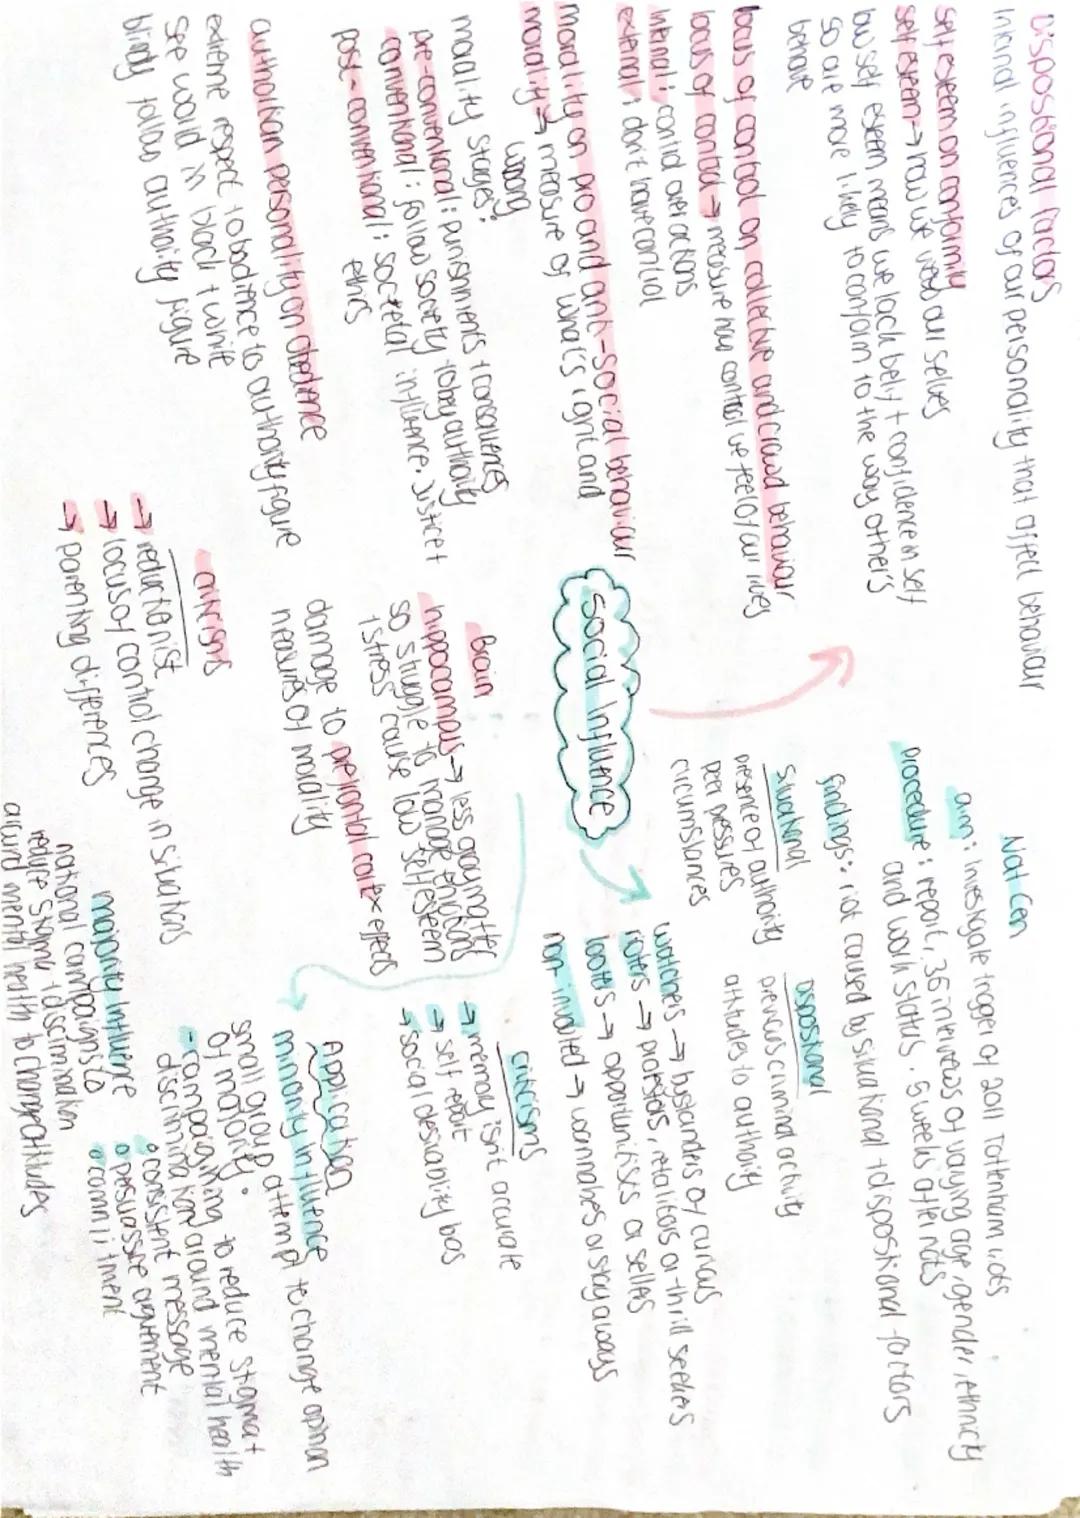 Dispositional factors
internal influences of our personality that affect behaviour
self esteem on conformity
self esteem → how we view our selves
low self esteem means we lack belif + confidence in self
so are more likely to conform to the way other's
behave
locus of control on collective and crowd behaviour
locus of control → measure how control we feel of our lives
internal: control over actions
external: don't have control
morality on pro and anti-social behaviour
morality → measure of what's right and
wrong
morality stages:
pre-conventional: punishments + consequences
conventional: follow society + obey authority
post-conventional: societal influence.
ethics
authoritarian personality on obedience
extreme respect to obedience to authority figure
see world in black + white
blindly follow authority figure
criticisms
→ reductionist
→ locus of control change in situations
→ parenting differences
Social Influence
Brain
hippocampus → less gray matter
so struggle to manage emotions
+ stress cause low self esteem
damage to prefrontal cortex effects
measures of morality
NatCen
aim: investigate trigger of 2011 Tottenham riots
procedure: report, 36 interviews of varying age, gender, ethnicity
and work status. 5 weeks after riots
findings: riot caused by situational + dispositional factors
situational
presence of authority
peer pressures
circumstances
dispositional
previous criminal activity
attitudes to authority
watchers → bystanders or curious
rioters → protestors, retaliators or thrill seekers
looters → opportunitists or sellers
non-involved → wannabes or stay aways
criticisms
→ memory isn't accurate
→ self report
→ social desirability bias
Application
minority influence
small group attempt to change opinion
of majority.
- campaigning to reduce stigma +
discrimination around mental health
• consistent message
• persuassive arguement
• committment
majority influence
national campaigns to
reduce stigma + discrimination
around mental health to change attitudes